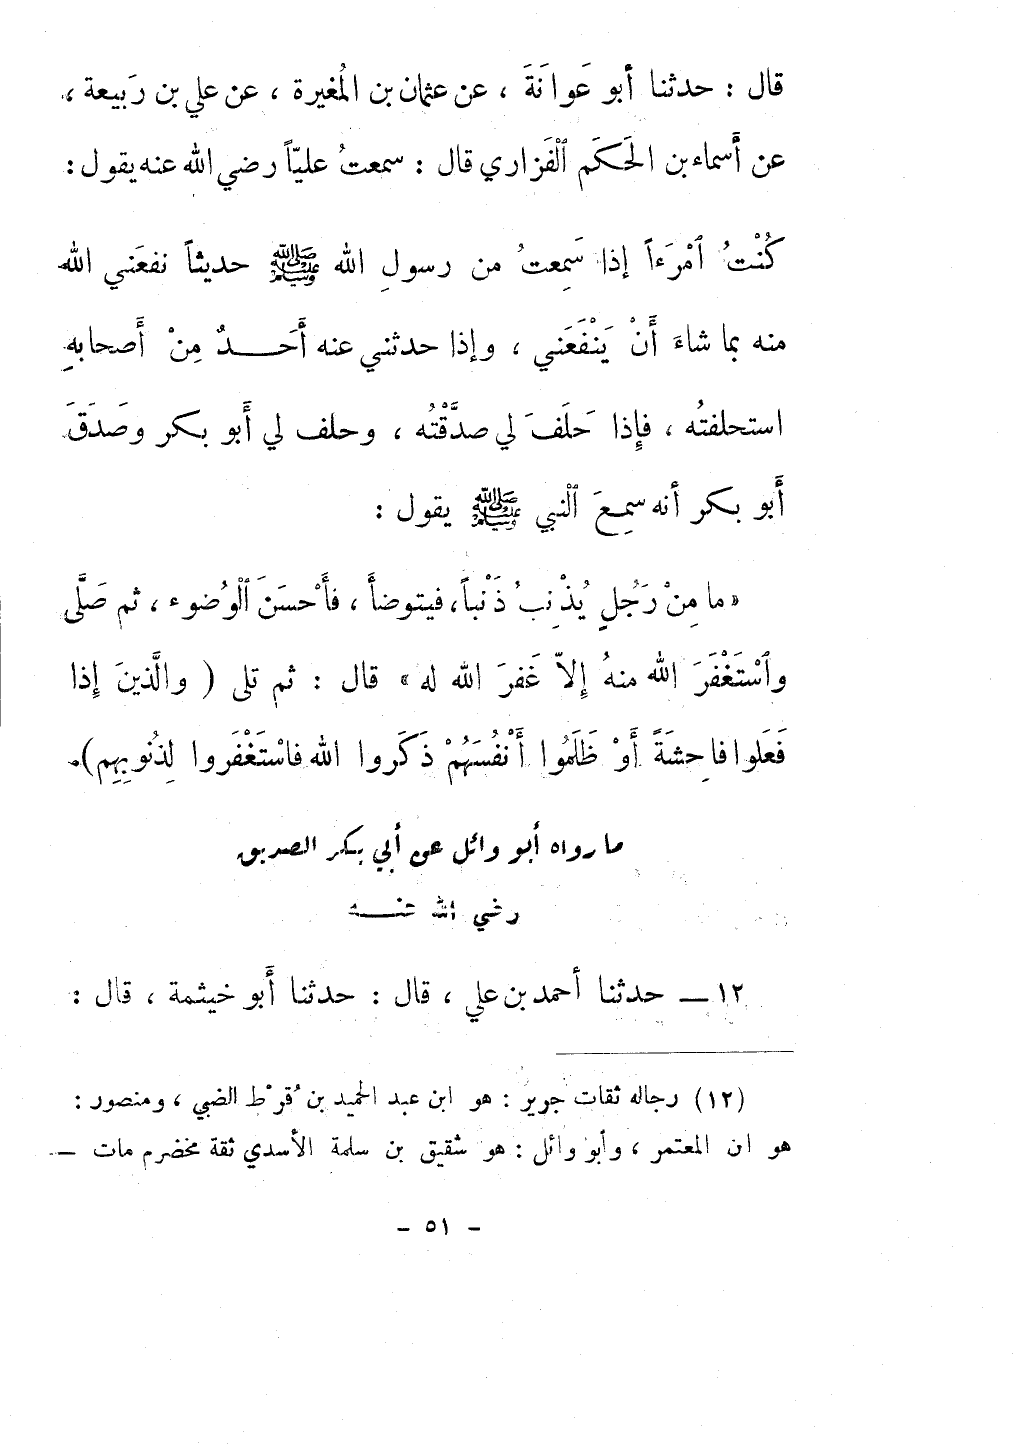 قال : حدثنا أبو عَوانَةَ ، عن عثمان بن المُغيرة ، عن علي بن رَبيعة ،
عن أَسماء بن الحَكَم ٱلْفَزاري قال : سمعتُ عليّاً رضي الله عنه يقول :
كُنْتُ ٱمْرَءاً إذا سَمِعتُ من رسولِ الله ﷺ حديثاً نفعَني الله
منه بما شاءَ أَنْ يَنْفَعَني ، وإذا حدثني عنه أَحَـــدٌ مِنْ أَصحابهِ
استحلفتُه ، فإِذا حَلَفَ لي صدَّقْتُه ، وحلف لي أَبو بكر وصَدَقَ
أَبو بكر أنه سمِعَ ٱلْنبي ﷺ يقول :
« ما مِنْ رَجُلٍ يُذْنِبُ ذَنْباً، فيتوضأَ ، فأَحْسَنَ ٱلْوُضوء ، ثم صَلَّى
وٱسْتَغْفَرَ الله منهُ إِلاّ غَفرَ الله له » قال : ثم تلى ( والَّذينَ إِذا
فَعَلوا فاحِشَةً أَوْ ظَلَمُوا أَنْفُسَهُمْ ذَكَروا الله فاسْتَغْفَروا لِذُنوبِهِم).
ما رواه أبو وائل عن أبي بكر الصديق
رضي الله عنـــه
١٢ — حدثنا أحمد بن علي ، قال : حدثنا أَبو خيثمة ، قال :
(١٢) رجاله ثقات جرير : هو ابن عبد الحميد بن قُرْط الضبي ، ومنصور :
هو ان المعتمر ، وأبو وائل : هو شقيق بن سلمة الأسدي ثقة مخضرم مات —
- ٥١ -